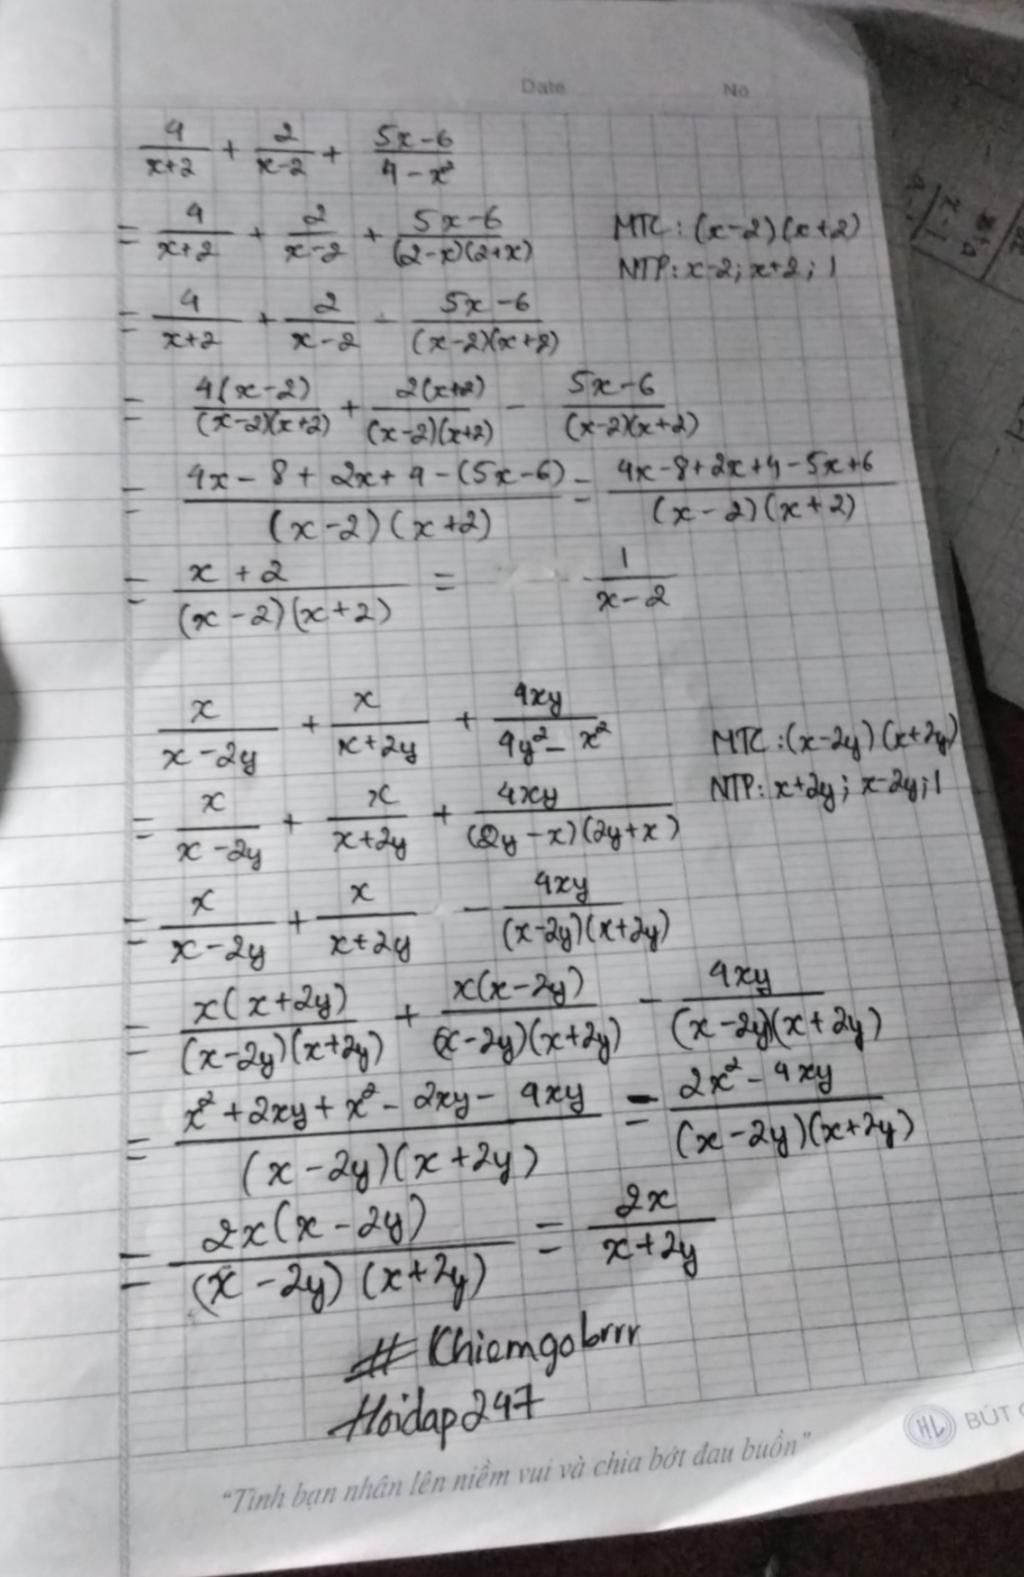 Date No
4/(x+2) + 2/(x-2) + (5x-6)/(4-x²)
= 4/(x+2) + 2/(x-2) + (5x-6)/((2-x)(2+x)) MTC: (x-2)(x+2)
NTP: x-2; x+2; 1
= 4/(x+2) + 2/(x-2) - (5x-6)/((x-2)(x+2))
= 4(x-2)/((x-2)(x+2)) + 2(x+2)/((x-2)(x+2)) - (5x-6)/((x-2)(x+2))
= (4x-8+2x+4-(5x-6))/((x-2)(x+2)) = (4x-8+2x+4-5x+6)/((x-2)(x+2))
= (x+2)/((x-2)(x+2)) = 1/(x-2)
x/(x-2y) + x/(x+2y) + 4xy/(4y²-x²) MTC: (x-2y)(x+2y)
NTP: x+2y; x-2y; 1
= x/(x-2y) + x/(x+2y) + 4xy/((2y-x)(2y+x))
= x/(x-2y) + x/(x+2y) - 4xy/((x-2y)(x+2y))
= x(x+2y)/((x-2y)(x+2y)) + x(x-2y)/((x-2y)(x+2y)) - 4xy/((x-2y)(x+2y))
= (x²+2xy+x²-2xy-4xy)/((x-2y)(x+2y)) = (2x²-4xy)/((x-2y)(x+2y))
= 2x(x-2y)/((x-2y)(x+2y)) = 2x/(x+2y)
# Khiemgobrrr
Hoidap247
HL BÚT
"Tình bạn nhân lên niềm vui và chia bớt đau buồn"